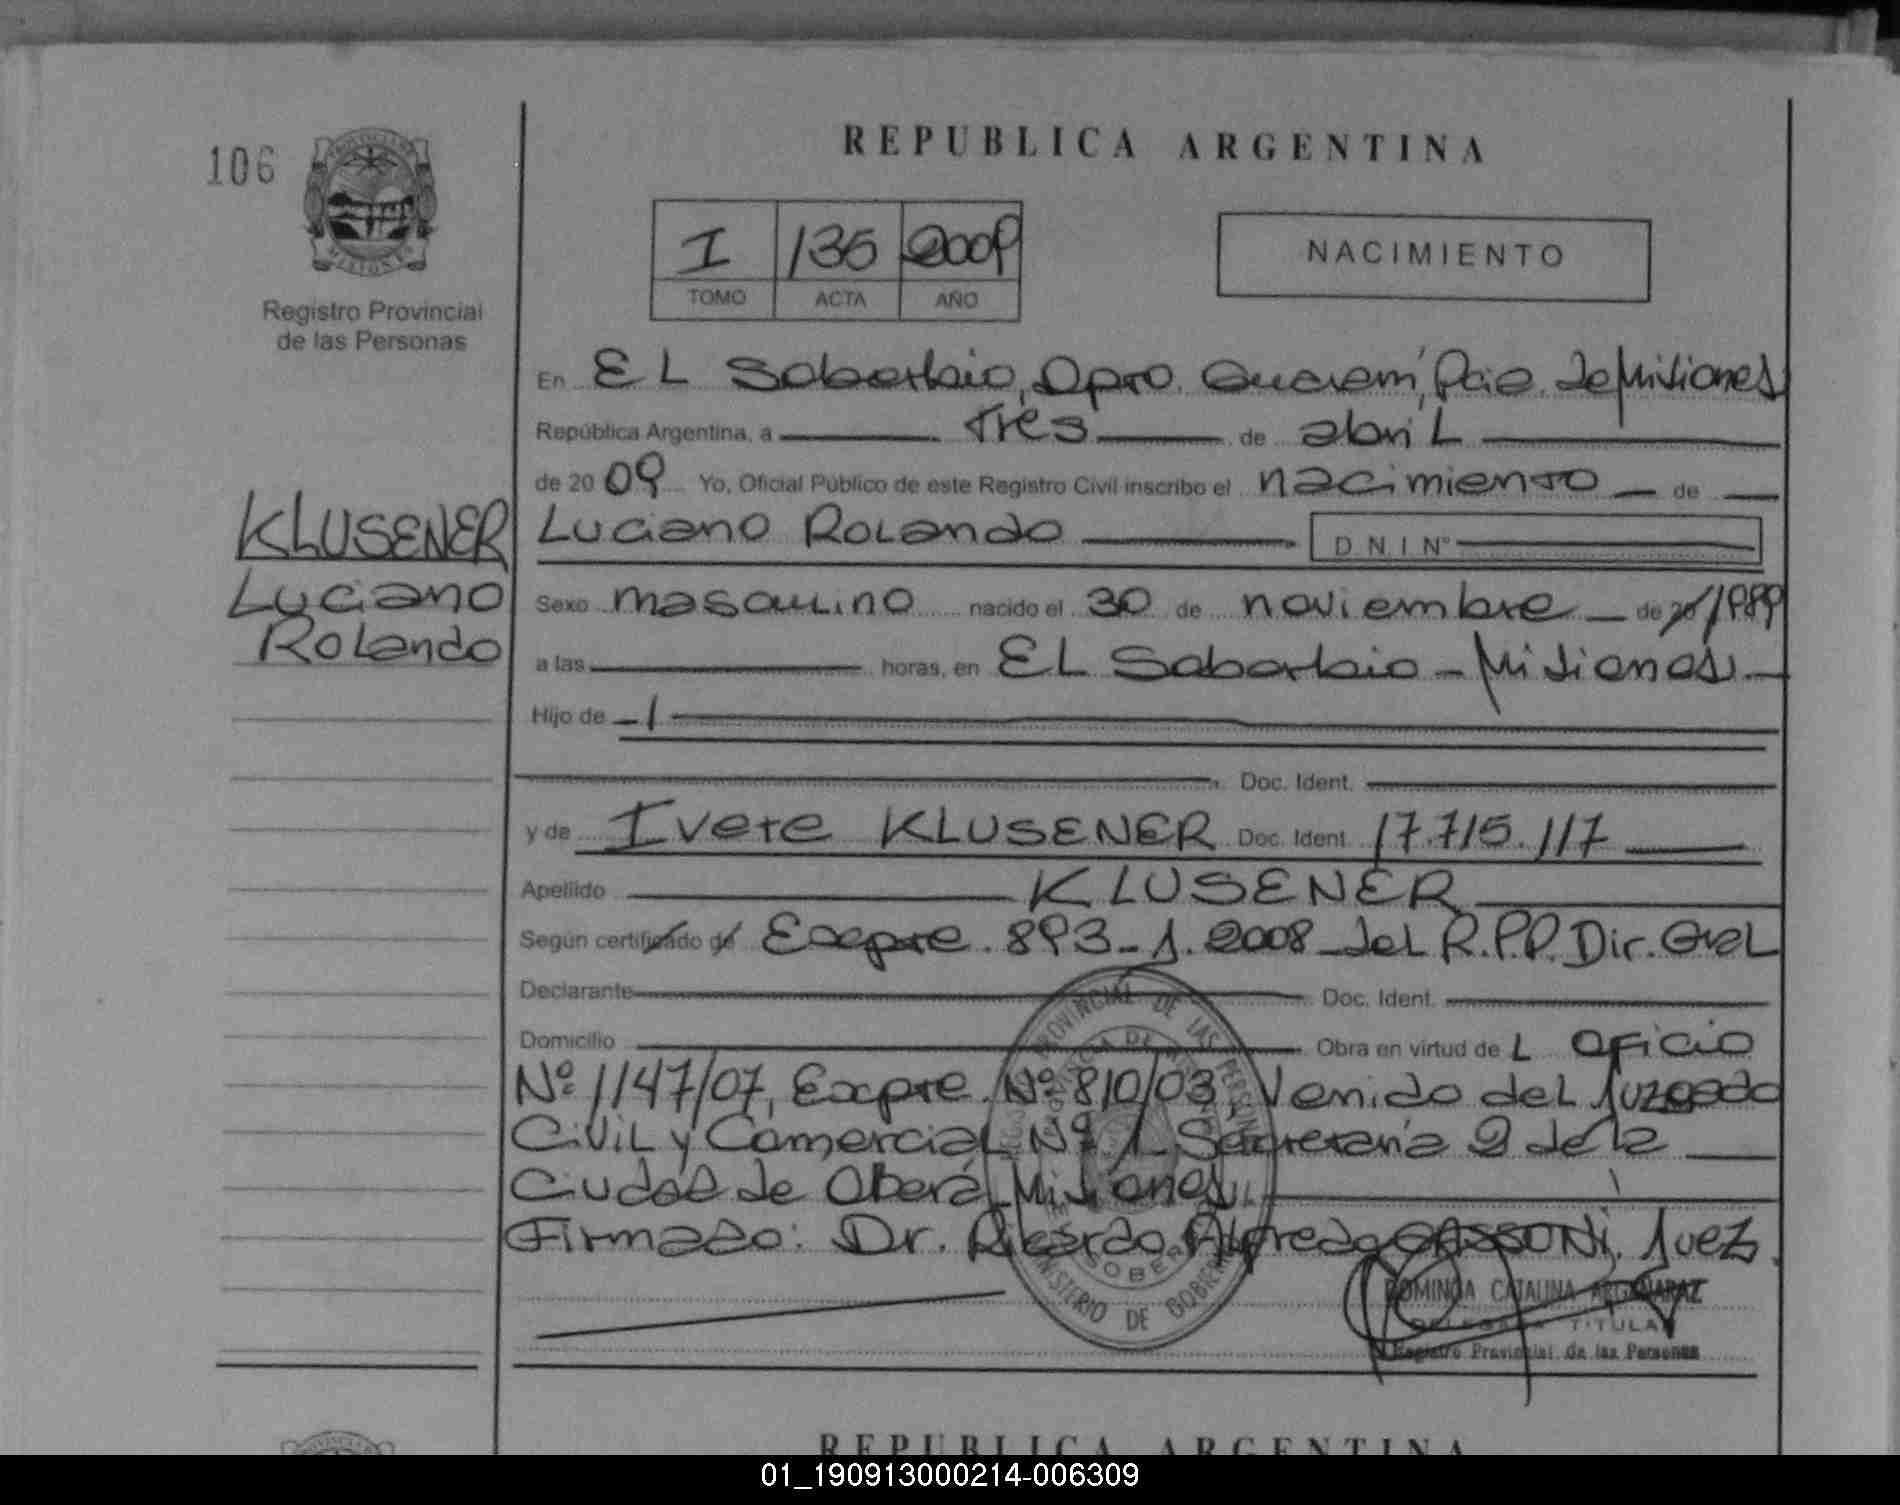 106
REPUBLICA ARGENTINA
I 135 2009
TOMO ACTA AÑO
NACIMIENTO
Registro Provincial
de las Personas
En EL Soberbio, Dpto. Guaraní, Pcia. de Misiones
República Argentina, a tres de abril
de 2009 Yo, Oficial Público de este Registro Civil inscribo el nacimiento de
KLUSENER
Luciano
Rolando
Luciano Rolando D.N.I. Nº
Sexo masculino nacido el 30 de noviembre de 20/1989
a las horas, en EL Soberbio - Misiones
Hijo de
Doc. Ident.
y de Ivete KLUSENER Doc. Ident. 17.715.117
Apellido KLUSENER
Según certificado de Expte. 893-1.2008 del R.P.P. Dir. Gral
Declarante Doc. Ident.
Domicilio Obra en virtud deL Oficio
Nº 1147/07, Expte. Nº 810/03, Venido del Juzgado
Civil y Comercial Nº 1 Secretaría 2 de la
Ciudad de Oberá Misiones
Firmado: Dr. Ricardo Alfredo CASSONI. Juez.
PROVINCIAL DE LAS PERSONAS
SOBERBIO
MINISTERIO DE GOBIERNO
DOMINGA CATALINA ARGAÑARAZ
DELEGADA TITULAR
Registro Provincial de las Personas
REPUBLICA ARGENTINA
01_190913000214-006309